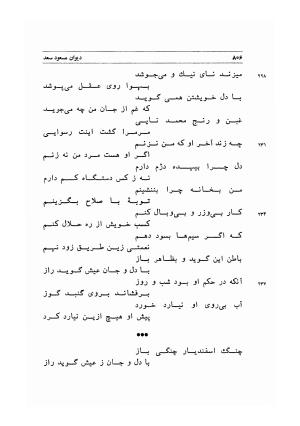 ۸۰۶
دیوان مسعود سعد
۲۲۸ میزند نای نیک و می‌جوشد
بهوا روی عقل می‌پوشد
با دل خویشتن همی گوید
که غم از جان من چه می‌جوید
غبن و رنج محمد نایی
مرمرا گشت اینت رسوایی
۲۳۱ چه زند آخر او که من نزنم
اگر او هست مرد من نه زنم
دل چرا بیهده دژم دارم
نه ز کس دستگاه کم دارم
من بخانه چرا بننشینم
توبهٔ با صلاح بگزینم
۲۳۴ کار بی‌وزر و بی‌وبال کنم
کسب خویش از ره حلال کنم
که اگر سیم‌ها بسود دهم
نعمتی زین طریق زود نهم
باطن این گوید و بظاهر باز
با دل و جان عیش گوید راز
۲۳۷ آنکه در حکم او بود شب و روز
برفشاند بروی گنبد گوز
آب بی‌روی او نیارد خورد
پیش او هیچ ازین نیارد کرد
•••
چنگ اسفندیار چنگی باز
با دل و جان ز عیش گوید راز